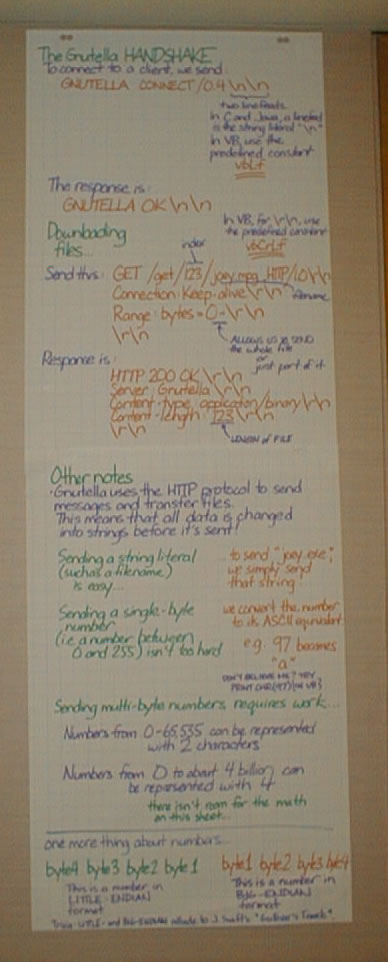 The Gnutella HANDSHAKE
To connect to a client, we send:
GNUTELLA CONNECT/0.4\n\n
two linefeeds
In C and Java, a linefeed
is the string literal "\n"
In VB, use the
predefined constant
vbLf
The response is:
GNUTELLA OK\n\n
In VB, for \r\n, use
the predefined constant
vbCrLf
Downloading
files...
index
Send this: GET /get/123/joey.mpg HTTP/1.0\r\n
filename
Connection: Keep-alive\r\n
Range: bytes=0-\r\n
\r\n
ALLOWS US TO SEND
the whole file
or
just part of it
Response is:
HTTP 200 OK\r\n
Server: Gnutella\r\n
Content-type: application/binary\r\n
Content-length: 123\r\n
\r\n
LENGTH OF FILE
Other notes
·Gnutella uses the HTTP protocol to send
messages and transfer files.
This means that all data is changed
into strings before it's sent!
Sending a string literal
(such as a filename)
is easy...
...to send "joey.exe",
we simply send
that string!
Sending a single-byte
number
(i.e a number between
0 and 255) isn't too hard
we convert the number
to its ASCII equivalent
e.g. 97 becomes
"a"
DON'T BELIEVE ME? TRY
PRINT CHR(97) IN VB)
Sending multi-byte numbers requires work...
Numbers from 0-65,535 can be represented
with 2 characters
Numbers from 0 to about 4 billion can
be represented with 4
there isn't room for the math
on this sheet...
one more thing about numbers...
byte4 byte3 byte2 byte1
This is a number in
LITTLE-ENDIAN
format
byte1 byte2 byte3 byte4
This is a number in
BIG-ENDIAN
format
LITTLE- and BIG-ENDIAN allude to J. Swift's "Gulliver's Travels".